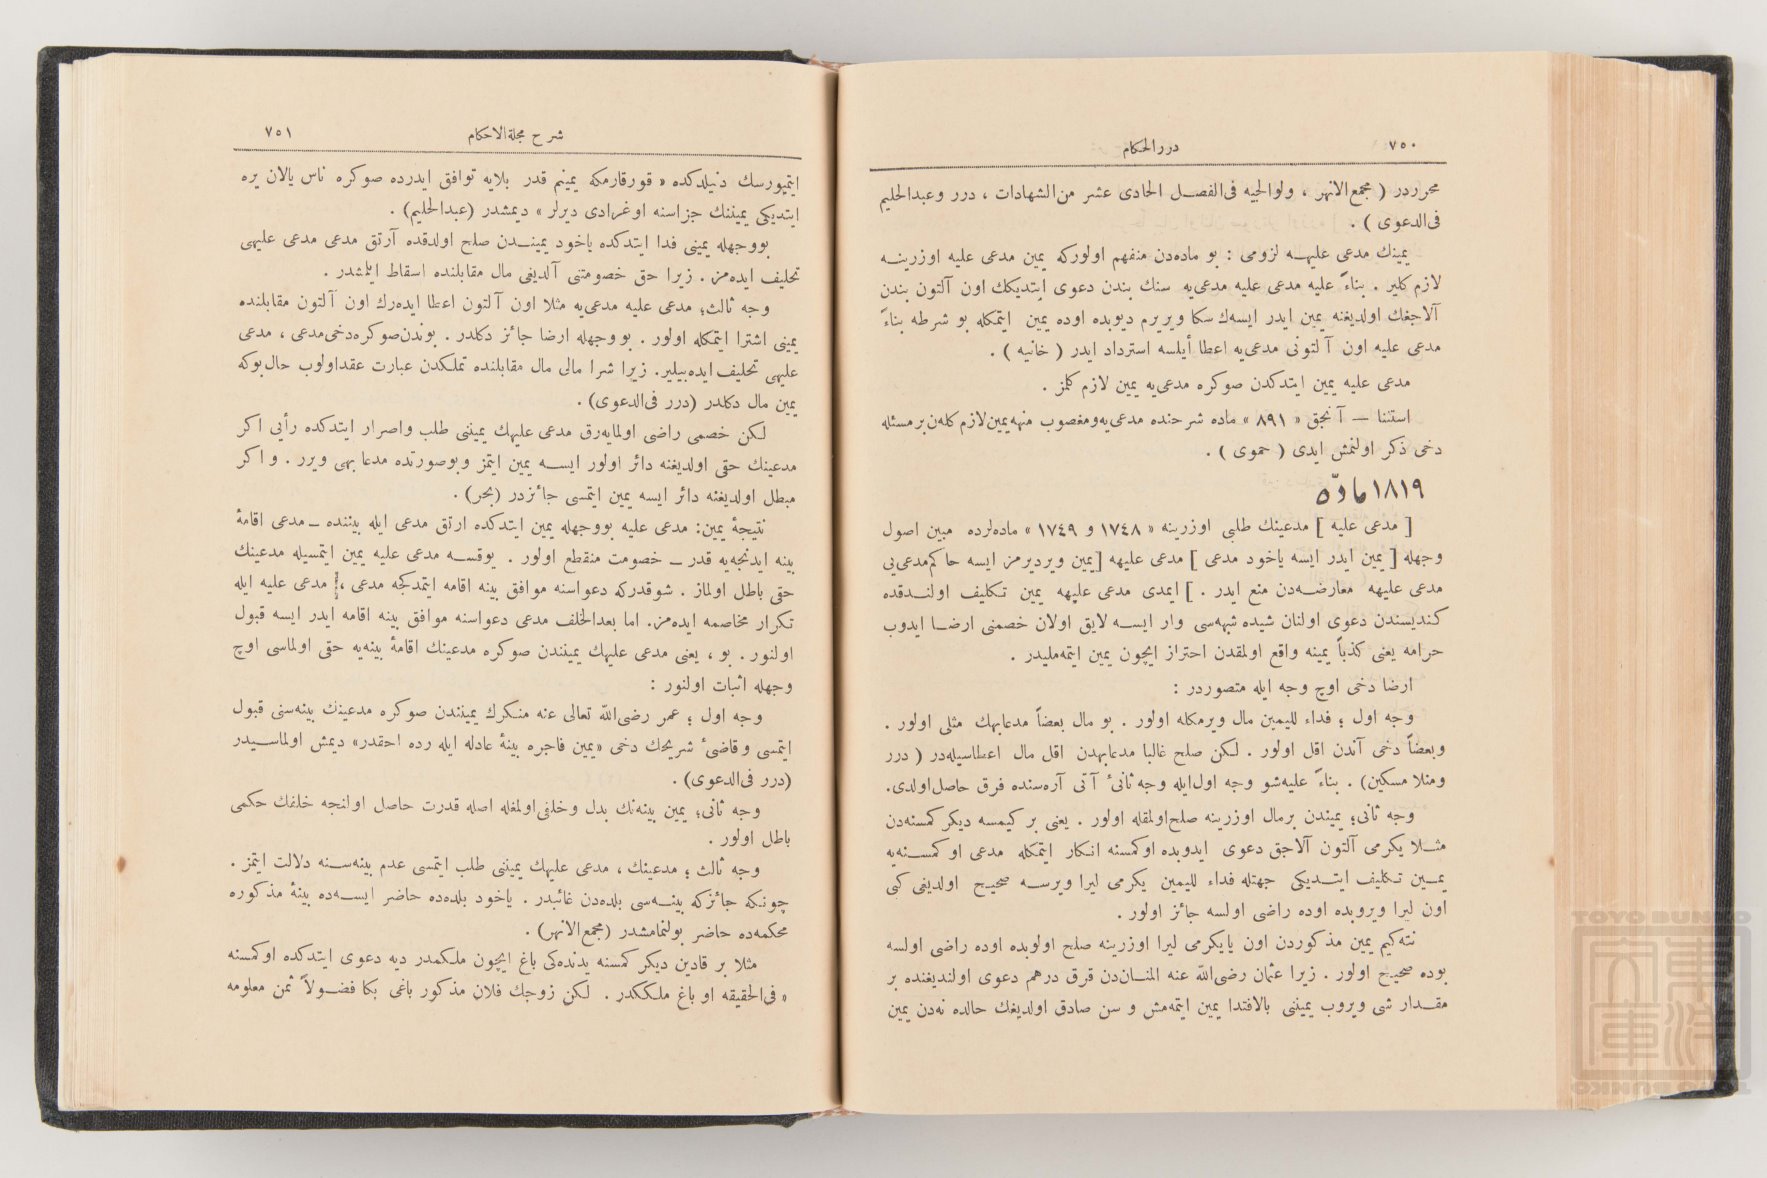 ٧٥٠
دررالحكام
محرردر ( مجمع‌الانهر ، ولوالجيه فى‌الفصل الحادى عشر من‌الشهادات ، درر وعبدالحليم
فى‌الدعوى ) .
يمينك مدعى عليهه لزومى : بو ماده‌دن منفهم اولوركه يمين مدعى عليه اوزرينه
لازم كلير . بناءً عليه مدعى عليه مدعى‌يه سنك بندن دعوى ايتديكك اون آلتون بندن
آلاجغك اولديغنه يمين ايدر ايسه‌ك سكا ويريرم ديوبده اوده يمين ايتمكله بو شرطه بناءً
مدعى عليه اون آلتونى مدعى‌يه اعطا أيلسه استرداد ايدر ( خانيه ) .
مدعى عليه يمين ايتدكدن صوكره مدعى‌يه يمين لازم كلمز .
استثنا — آنجق « ٨٩١ » ماده شرحنده مدعى‌يه‌ومغصوب منهه‌يمين‌لازم كله‌ن‌برمسئله
دخى ذكر اولنمش ايدى ( حموى ) .
١٨١٩ مادّه
[ مدعى عليه ] مدعينك طلبى اوزرينه « ١٧٤٨ و ١٧٤٩ » ماده‌لرده مبين اصول
وجهله [ يمين ايدر ايسه ياخود مدعى ] مدعى عليهه [يمين ويرديرمز ايسه حاكم‌مدعى‌يى
مدعى عليهه معارضه‌دن منع ايدر . ] ايمدى مدعى عليهه يمين تكليف اولندقده
كنديسندن دعوى اولنان شيده شبهه‌سى وار ايسه لايق اولان خصمنى ارضا ايدوب
حرامه يعنى كذباً يمينه واقع اولمقدن احتراز ايچون يمين ايتمه‌مليدر .
ارضا دخى اوچ وجه ايله متصوردر :
وجه اول ؛ فداء لليمين مال ويرمكله اولور . بو مال بعضاً مدعابهك مثلى اولور .
وبعضاً دخى آندن اقل اولور . لكن صلح غالبا مدعابهدن اقل مال اعطاسيله‌در ( درر
ومنلا مسكين ) . بناءً عليه‌شو وجه اول‌ايله وجه ثانىٔ آتى آره‌سنده فرق حاصل‌اولدى.
وجه ثانى؛ يميندن برمال اوزرينه صلح‌اولمقله اولور . يعنى بر كيمسه ديكر كمسنه‌دن
مثلا يكرمى آلتون آلاجق دعوى ايدوبده اوكمسنه انكار ايتمكله مدعى اوكمسنه‌يه
يمين تكليف ايتديكى جهتله فداء لليمين يكرمى ليرا ويرسه صحيح اولديغى كبى
اون ليرا ويروبده اوده راضى اولسه جائز اولور .
نته‌كيم يمين مذكوردن اون يايكرمى ليرا اوزرينه صلح اولوبده اوده راضى اولسه
بوده صحيح اولور . زيرا عثمان رضى‌اللّه عنه المنان‌دن قرق درهم دعوى اولنديغنده بر
مقدار شى ويروب يميننى بالافتدا يمين ايتمه‌مش و سن صادق اولديغك حالده نه‌دن يمين
شرح مجلة‌الاحكام
٧٥١
ايتميورسك دنيلدكده « قورقارمكه يمينم قدر بلايه توافق ايدرده صوكره ناس يالان يره
ايتديكى يميننك جزاسنه اوغرادى ديرلر » ديمشدر (عبدالحليم) .
بووجهله يمينى فدا ايتدكده ياخود يميندن صلح اولدقده آرتق مدعى مدعى عليهى
تحليف ايده‌من . زيرا حق خصومتنى آلديغى مال مقابلنده اسقاط ايتمشدر .
وجه ثالث؛ مدعى عليه مدعى‌يه مثلا اون آلتون اعطا ايده‌رك اون آلتون مقابلنده
يمينى اشترا ايتمكله اولور . بووجهله ارضا جائز دكلدر . بوندن‌صوكره‌دخى‌مدعى ، مدعى
عليهى تحليف‌ايده‌بيلير. زيرا شرا مالى مال مقابلنده تملكدن عبارت عقداولوب حال‌بوكه
يمين مال دكلدر (درر فى‌الدعوى) .
لكن خصمى راضى اولمايه‌رق مدعى عليهك يميننى طلب واصرار ايتدكده رأيى اكر
مدعينك حقى اولديغنه دائر اولور ايسه يمين ايتمز وبوصورتده مدعابهى ويرر . و اكر
مبطل اولديغنه دائر ايسه يمين ايتمسى جائزدر (بحر) .
نتيجۀ يمين: مدعى عليه بووجهله يمين ايتدكده ارتق مدعى ايله بيننده ــ مدعى اقامۀ
بينه ايدنجه‌يه قدر ــ خصومت منقطع اولور . يوقسه مدعى عليه يمين ايتمسيله مدعينك
حقى باطل اولماز . شوقدركه دعواسنه موافق بينه اقامه ايتمدكجه مدعى ، مدعى عليه ايله
تكرار مخاصمه ايده‌من. اما بعدالخلف مدعى دعواسنه موافق بينه اقامه ايدر ايسه قبول
اولنور . بو ، يعنى مدعى عليهك يميننندن صوكره مدعينك اقامۀ بينه‌يه حقى اولماسى اوچ
وجهله اثبات اولنور :
وجه اول ؛ عمر رضى‌اللّه تعالى عنه منكرك يميننندن صوكره مدعينك بينه‌سنى قبول
ايتمسى وقاضىٔ شريحك دخى «يمين فاجره بينۀ عادله ايله رده احقدر» ديمش اولماسيدر
(درر فى‌الدعوى) .
وجه ثانى؛ يمين بينه‌نك بدل وخلفى‌اولمغله اصله قدرت حاصل اولنجه خلفك حكمى
باطل اولور .
وجه ثالث ؛ مدعينك ، مدعى عليهك يميننى طلب ايتمسى عدم بينه‌سنه دلالت ايتمز .
چونكه جائزكه بينه‌سى بلده‌دن غائبدر . ياخود بلده‌ده حاضر ايسه‌ده بينۀ مذكوره
محكمه‌ده حاضر بولنمامشدر (مجمع‌الانهر) .
مثلا بر قادين ديكر كمسنه يدنده‌كى باغ ايچون ملكمدر ديه دعوى ايتدكده اوكمسنه
« فى‌الحقيقه او باغ ملككدر . لكن زوجك فلان مذكور باغى بكا فضولاً ثمن معلومه
TOYO BUNKO